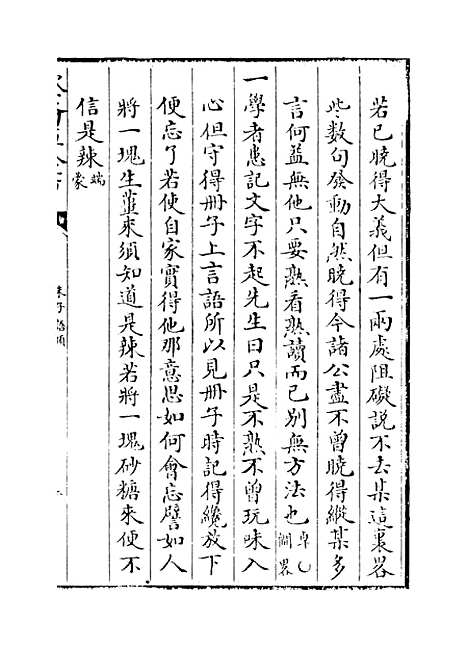 若已曉得大義但有一兩處阻礙説不去某這裏畧
些數句發動自然曉得今諸公盡不曾曉得縱某多
言何益無他只要熟看熟讀而已别無方法也
一學者患記文字不起先生曰只是不熟不曾玩味入
心但守得册子上言語所以見册子時記得纔放下
便忘了若使自家實得他那意思如何會忘譬如人
將一塊生薑來須知道是辣若將一塊砂糖來便不
信是辣端蒙
朱子語類